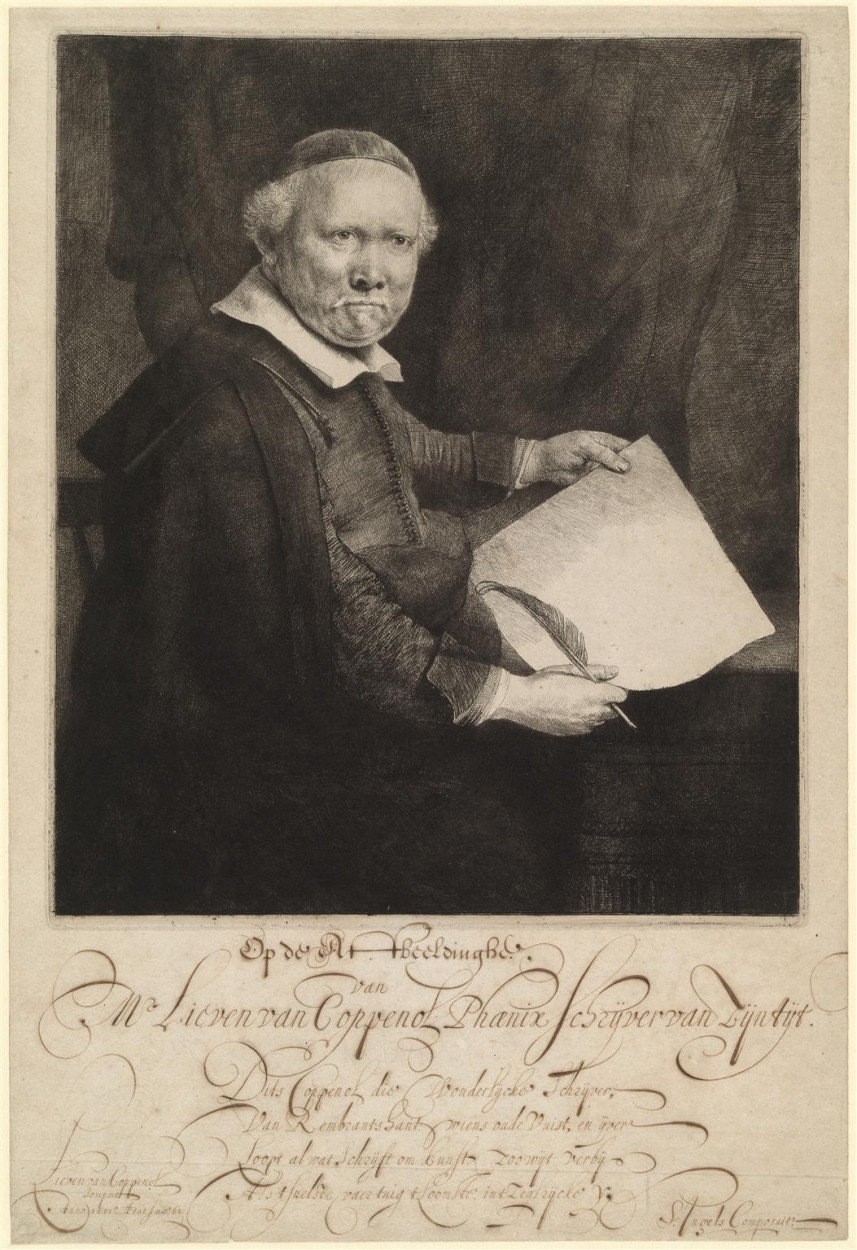 Op de Afbeeldinghe.
van
Mr. Lieven van Coppenol Phœnix Schrÿver van Zÿn tÿt.
Dits Coppenol die Wonderlÿcke Schrÿver,
Van Rembrants hant, wiens oude Vuist, en ÿver
Loopt al wat Schrÿft om Cunst, Zoo wÿt verbÿ
Als t'snelste vaertuig t'loomste int Zearÿcke Y.
Lieven van Coppenol
S. Ingels Composuit.